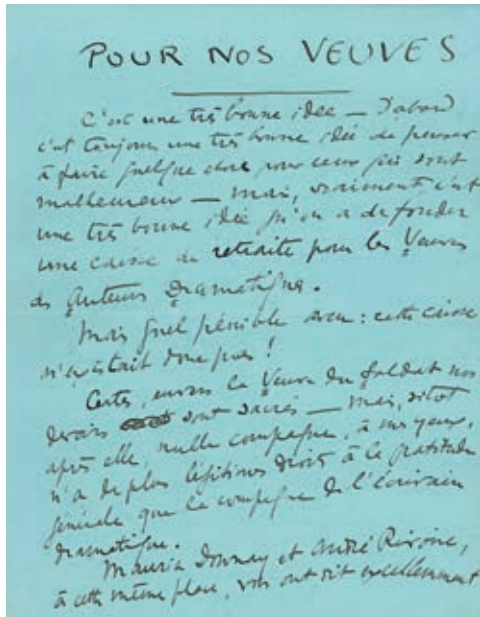 POUR NOS VEUVES
C'est une très bonne idée — D'abord
c'est toujours une très bonne idée de penser
à faire quelque chose pour ceux qui sont
malheureux — mais, vraiment c'est
une très bonne idée qu'on a de fonder
une caisse de retraite pour les Veuves
des Auteurs Dramatiques.
Mais quel pénible aveu : cette caisse
n'existait donc pas !
Certes, envers la Veuve du Soldat nos
devoirs sont sacrés — mais, sitôt
après elle, nulle compagne, à mes yeux,
n'a de plus légitimes droits à la gratitude
générale que la compagne de l'écrivain
dramatique.
Maurice Donnay et André Rivoire,
à cette même place, vous ont dit excellemment